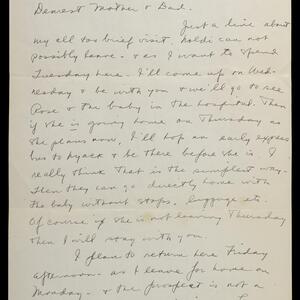 Dearest Mother & Dad.
Just a line about
my all too brief visit. Noldi can not
possibly leave - & as I want to spend
Tuesday here. I'll come up on Wed-
nesday & be with you & we'll go to see
Rose & the baby in the hospital. Then
if she is going home on Thursday as
she plans now, I'll hop an early express
bus to Nyack & be there before she is. I
really think that is the simplest way.
Then they can go directly home with
the baby without stops, luggage etc.
Of course if she is not leaving Thursday
then I will stay with you.
I plan to return here Friday
afternoon - as I leave for home on
Monday - & the prospect is not a